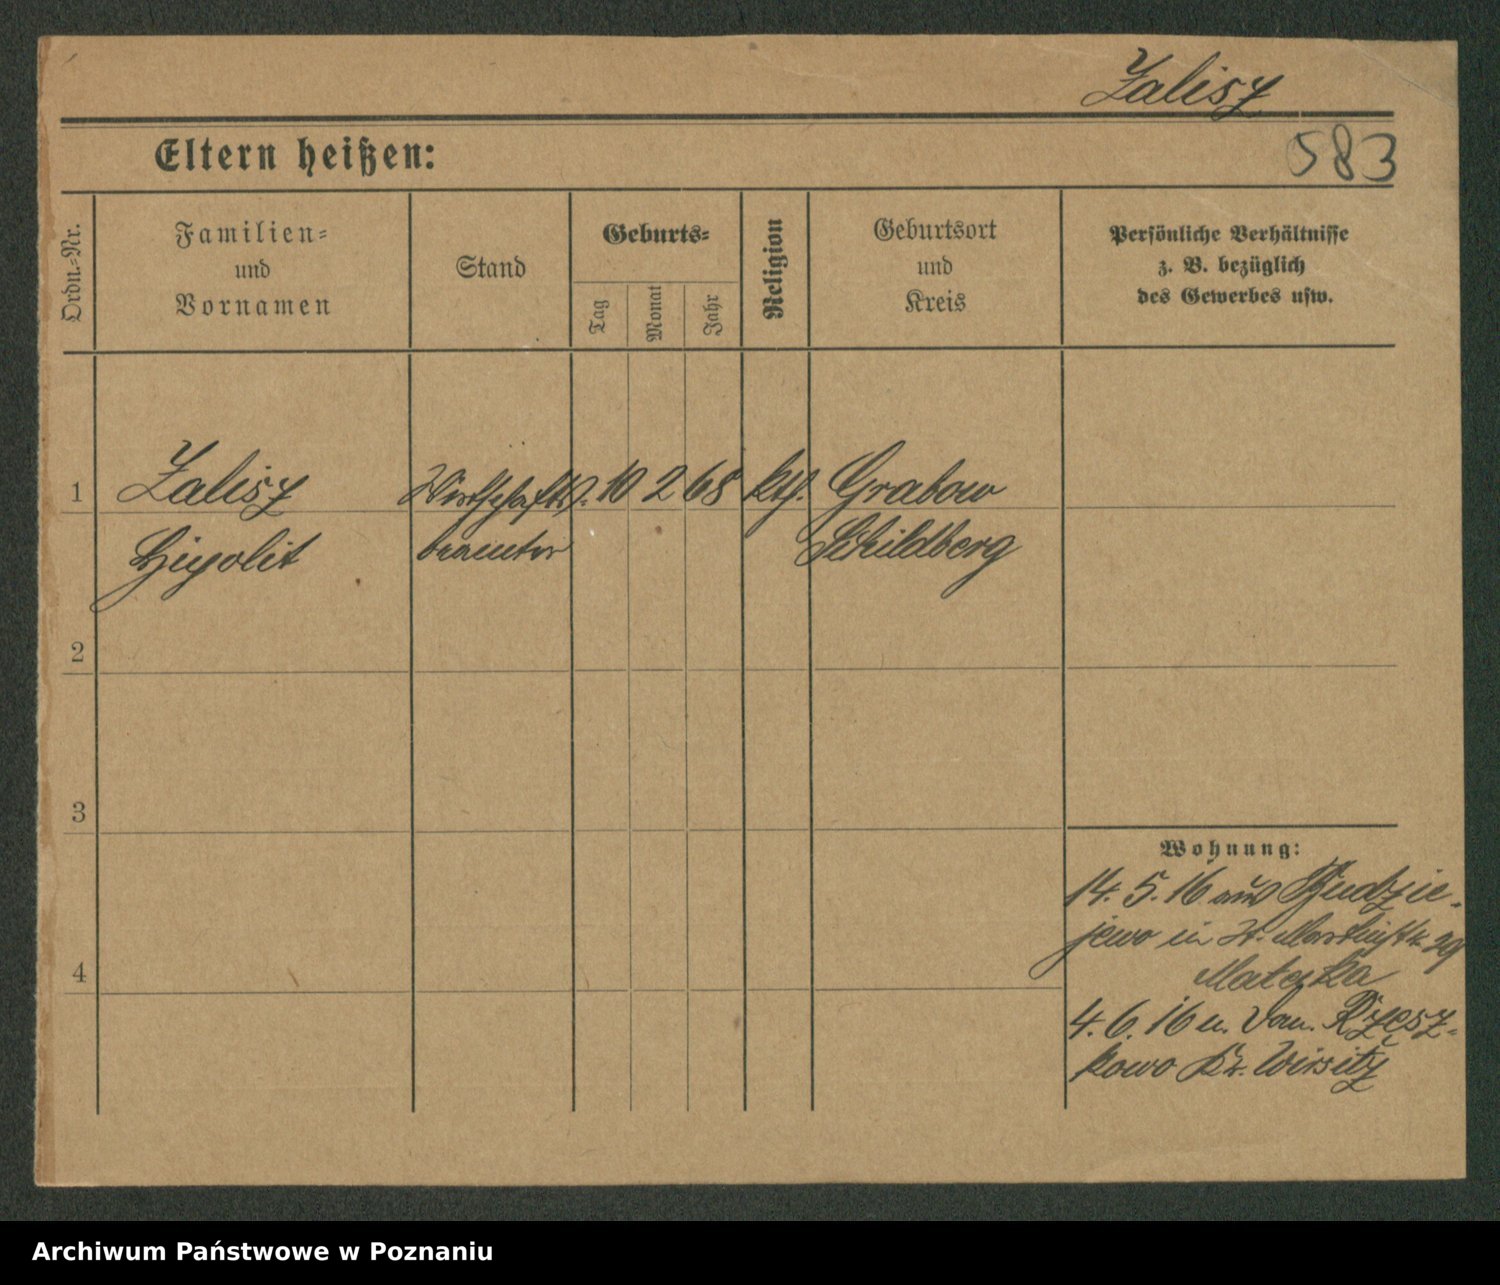 Zalisz
Eltern heißen:
583
Ordn.-Nr.
Familien-
und
Vornamen
Stand
Geburts-
Tag
Monat
Jahr
Religion
Geburtsort
und
Kreis
Persönliche Verhältnisse
z. B. bezüglich
des Gewerbes usw.
1
Zalisz
Wirthschafts
10
2
68
kth.
Grabow
Hipolit
beamter
Schildberg
2
3
4
Wohnung:
14. 5. 16 aus Budzie-
jewo in St. Martinstr. 29
Matecka
4. 6. 16 n. Dom. Rzesz-
kowo Kr. Wirsitz
Archiwum Państwowe w Poznaniu